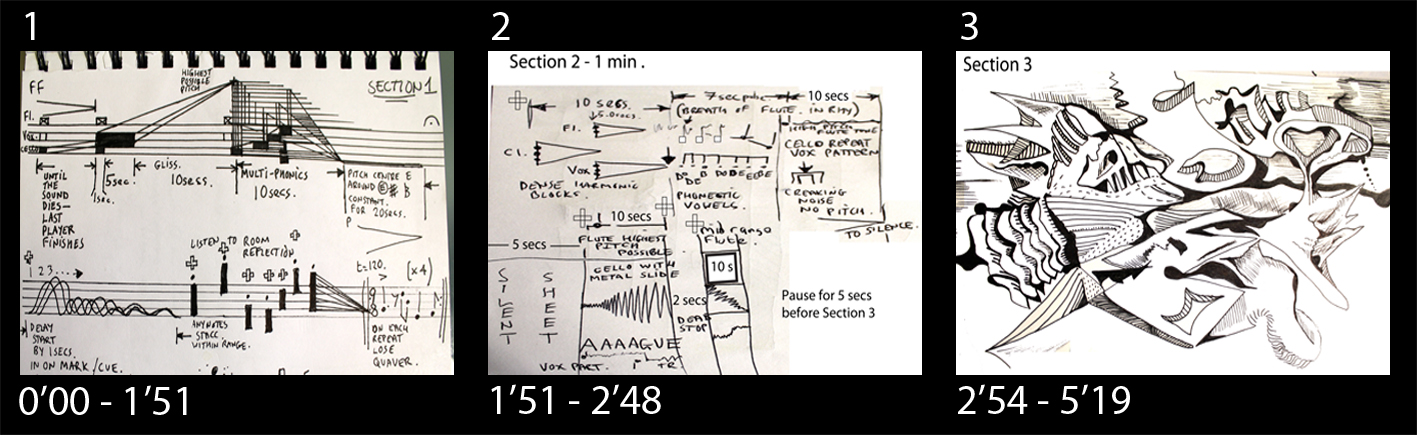 1
FF
HIGHEST
POSSIBLE
PITCH
SECTION 1
Fl.
Vox.
CELLO
UNTIL
THE
SOUND
DIES—
LAST
PLAYER
FINISHES
1sec.
5sec.
GLISS.
10secs.
MULTI-PHONICS
10secs.
PITCH CENTRE E
AROUND E # B
CONSTANT.
FOR 20secs.
P
LISTEN TO ROOM
REFLECTION
1 2 3...
t=120.
(x4)
DELAY
START
BY 1SECS.
IN ON MARK/CUE.
ANY NOTES
STACC.
WITHIN RANGE.
ON EACH
REPEAT
LOSE
QUAVER.
0'00 - 1'51
2
Section 2 - 1 min .
10 secs.
Fl.
Cl.
Vox
DENSE HARMONIC
BLOCKS.
(BREATH OF FLUTE.
PHONESTIC
VOWELS.
10 secs
HIGH PITCH
FLUTE TONE
CELLO REPEAT
VOX PATTERN
CREAKING
NOISE
NO PITCH.
TO SILENCE.
5 secs
SILENT
SHEET
10 secs
FLUTE HIGHEST
PITCH
POSSIBLE
CELLO WITH
METAL SLIDE
2 secs
mid range
Flute.
10 s
DEAD
STOP
AAAAGUE
VOX PART.
Pause for 5 secs
before Section 3
1'51 - 2'48
3
Section 3
2'54 - 5'19